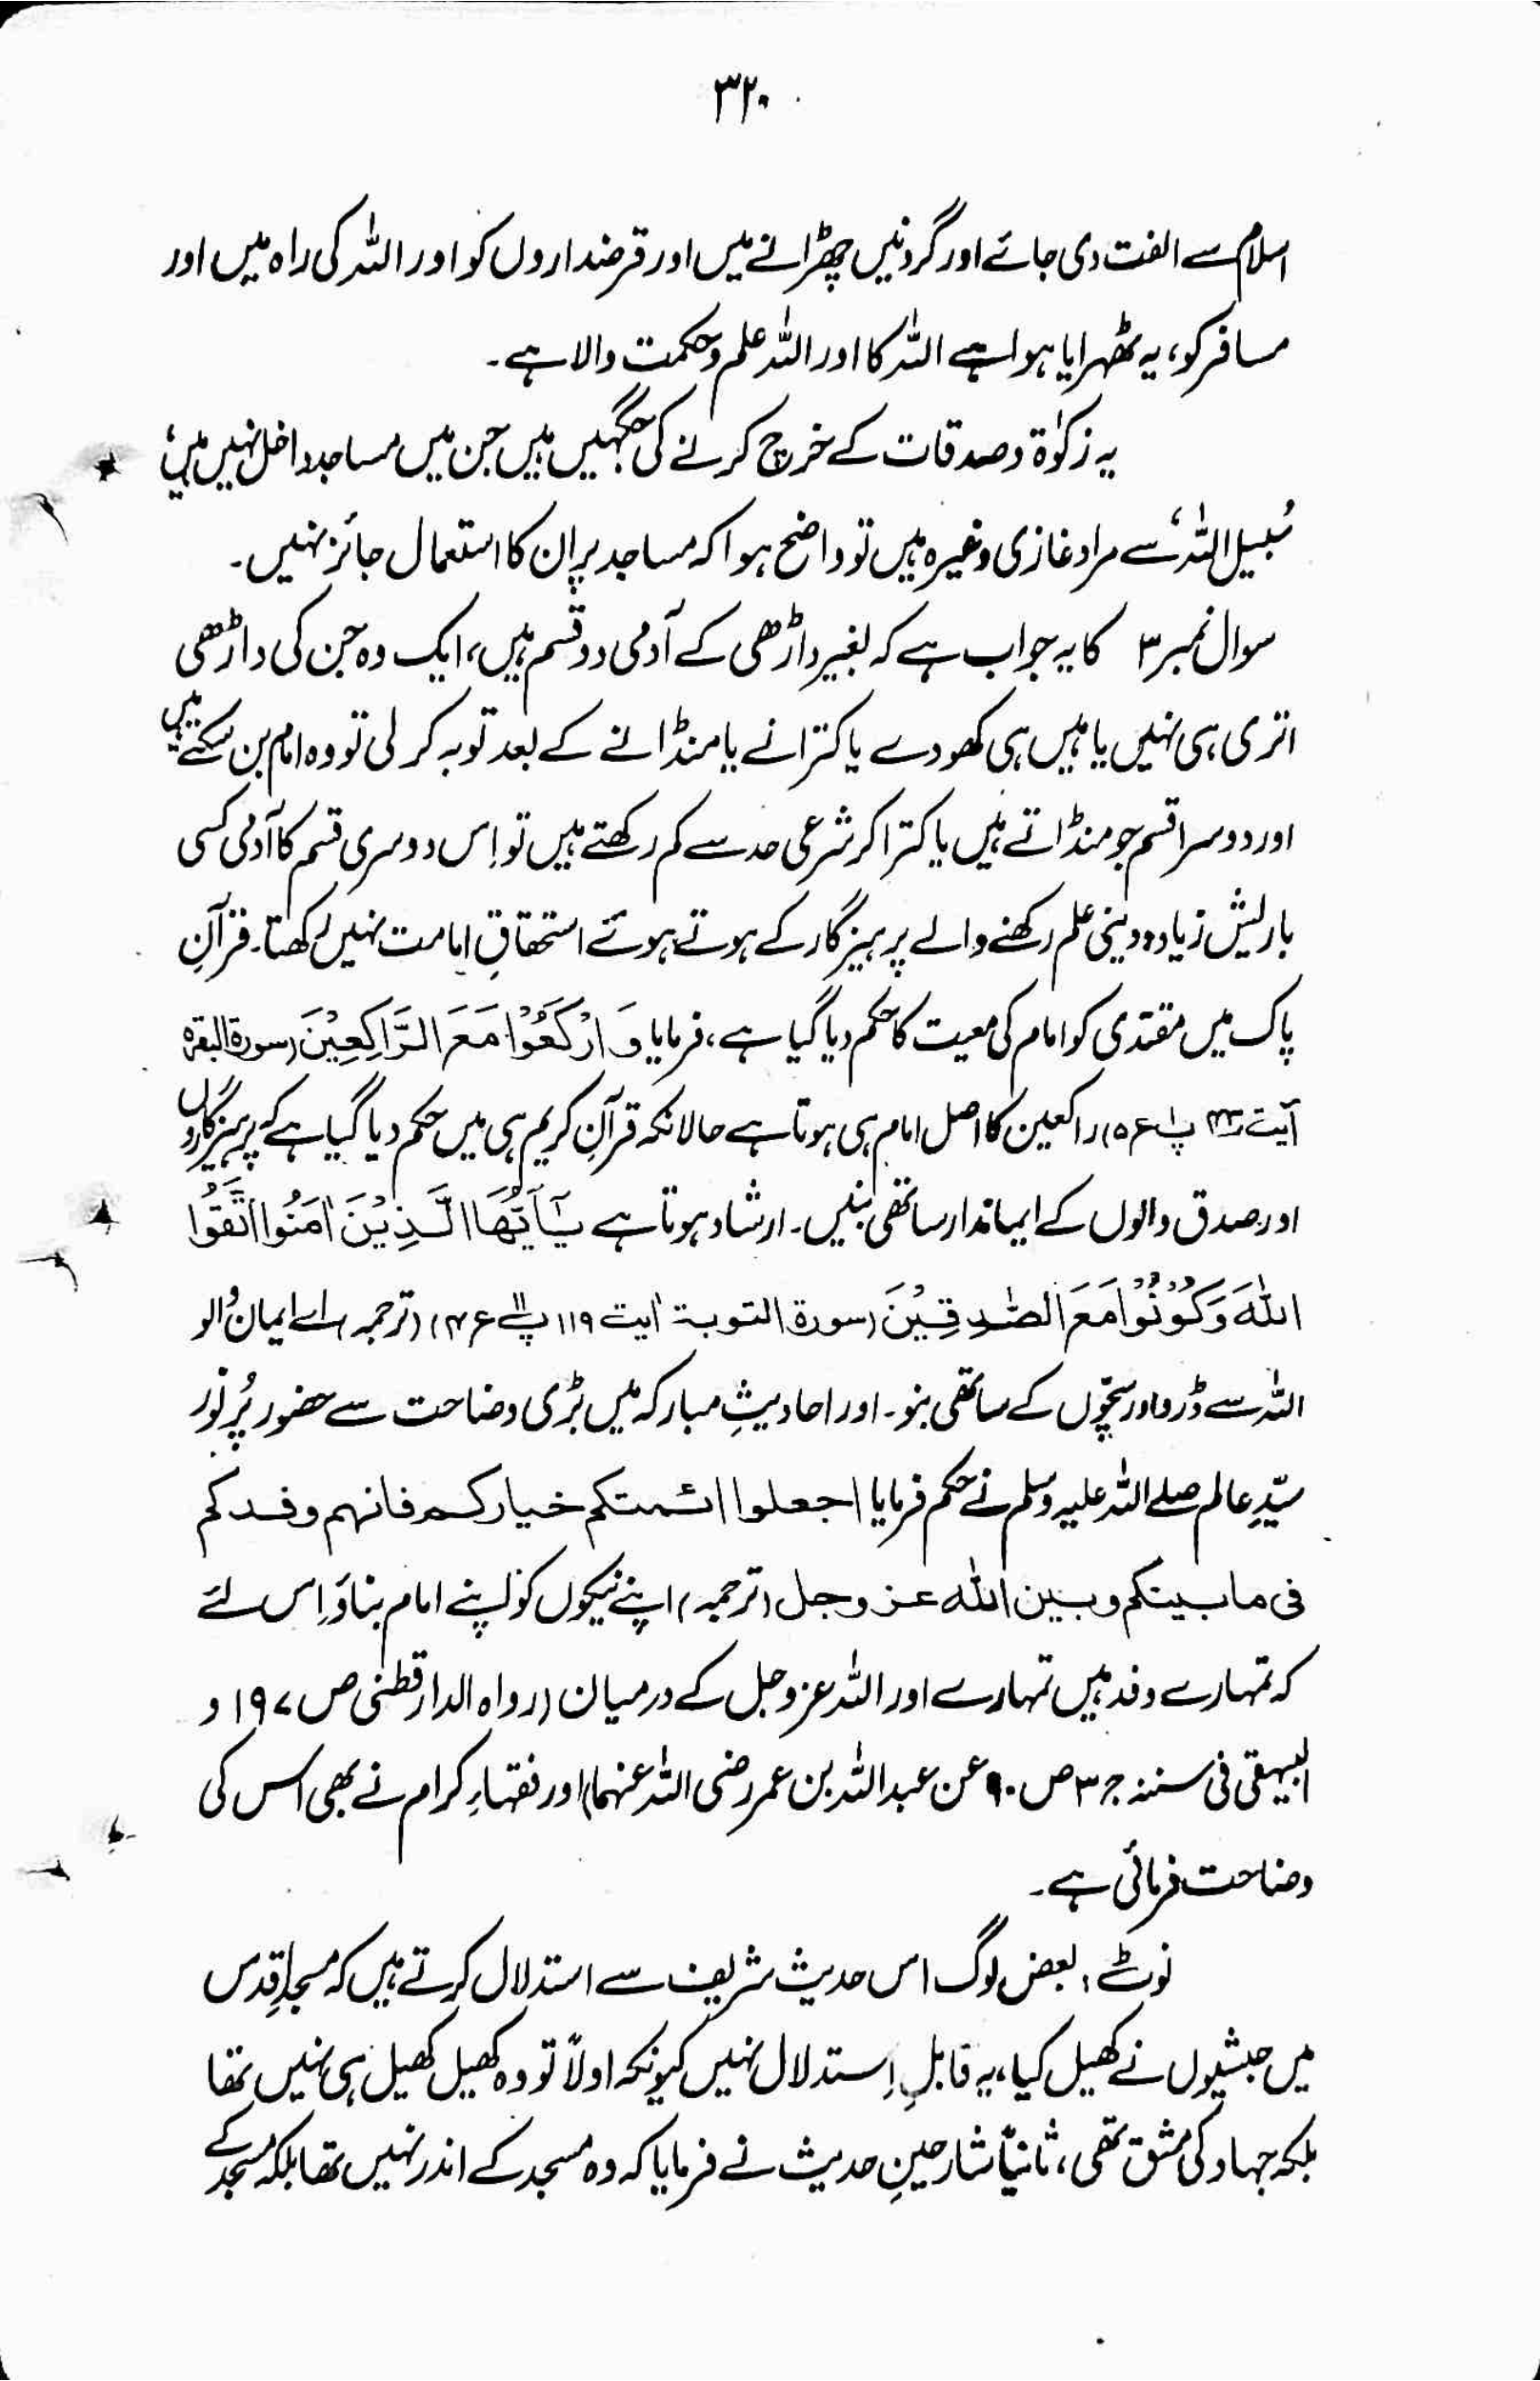 ۳۲۰
اسلام سے الفت دی جائے اور گردنیں چھڑانے میں اور قرضداروں کو اور اللہ کی راہ میں اور
مسافر کو، یہ ٹھہرایا ہوا ہے اللہ کا اور اللہ علم و حکمت والا ہے۔
یہ زکوٰۃ و صدقات کے خرچ کرنے کی جگہیں ہیں جن میں مساجد داخل نہیں ہیں،
سُبیل اللہ سے مراد غازی وغیرہ ہیں تو واضح ہوا کہ مساجد پر ان کا استعمال جائز نہیں۔
سوال نمبر ۳ کا یہ جواب ہے کہ بغیر داڑھی کے آدمی دو قسم ہیں، ایک وہ جن کی داڑھی
اتری ہی نہیں یا ہیں ہی کھودے یا کترانے یا منڈانے کے بعد توبہ کر لی تو وہ امام بن سکتے ہیں
اور دوسرا قسم جو منڈاتے ہیں یا کترا کر شرعی حد سے کم رکھتے ہیں تو اِس دوسری قسم کا آدمی کسی
باریش زیادہ دینی علم رکھنے والے پرہیزگار کے ہوتے ہوئے استحقاقِ امامت نہیں رکھتا۔ قرآنِ
پاک میں مقتدی کو امام کی معیت کا حکم دیا گیا ہے، فرمایا وَارْكَعُوْا مَعَ الرَّاكِعِيْنَ (سورۃ البقرہ
آیت ۴۳ پ۱ ع۵) راکعین کا اصل امام ہی ہوتا ہے حالانکہ قرآنِ کریم ہی میں حکم دیا گیا ہے کہ پرہیزگاروں
اور صدق والوں کے ایماندار ساتھی بنیں۔ ارشاد ہوتا ہے يٰٓاَيُّهَا الَّذِيْنَ اٰمَنُوا اتَّقُوا
اللّٰهَ وَكُوْنُوْا مَعَ الصّٰدِقِيْنَ (سورۃ التوبۃ آیت ۱۱۹ پ۱۱ ع۴) (ترجمہ) اے ایمان والو
اللہ سے ڈرو اور سچّوں کے ساتھی بنو۔ اور احادیثِ مبارکہ میں بڑی وضاحت سے حضور پُرنُور
سیّدِ عالم صلے اللہ علیہ وسلم نے حکم فرمایا اجعلوا ائمتكم خياركم فانهم وفدكم
فى ما بينكم وبين اللّٰه عز وجل (ترجمہ) اپنے نیکوں کو اپنے امام بناؤ اِس لئے
کہ تمہارے وفد ہیں تمہارے اور اللہ عز وجل کے درمیان (رواہ الدارقطنی ص ۱۹۷ و
البیہقی فی سننہ ج ۳ ص ۹۰ عن عبد اللہ بن عمر رضی اللہ عنہما) اور فقہاءِ کرام نے بھی اس کی
وضاحت فرمائی ہے۔
نوٹ: بعض لوگ اس حدیث شریف سے استدلال کرتے ہیں کہ مسجدِ اقدس
میں حبشیوں نے کھیل کیا، یہ قابلِ اِستدلال نہیں کیونکہ اولاً تو وہ کھیل کھیل ہی نہیں تھا
بلکہ جہاد کی مشق تھی، ثانیًا شارحینِ حدیث نے فرمایا کہ وہ مسجد کے اندر نہیں تھا بلکہ مسجد کے